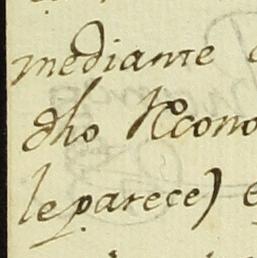 mediante
dho Recono
le parece) e